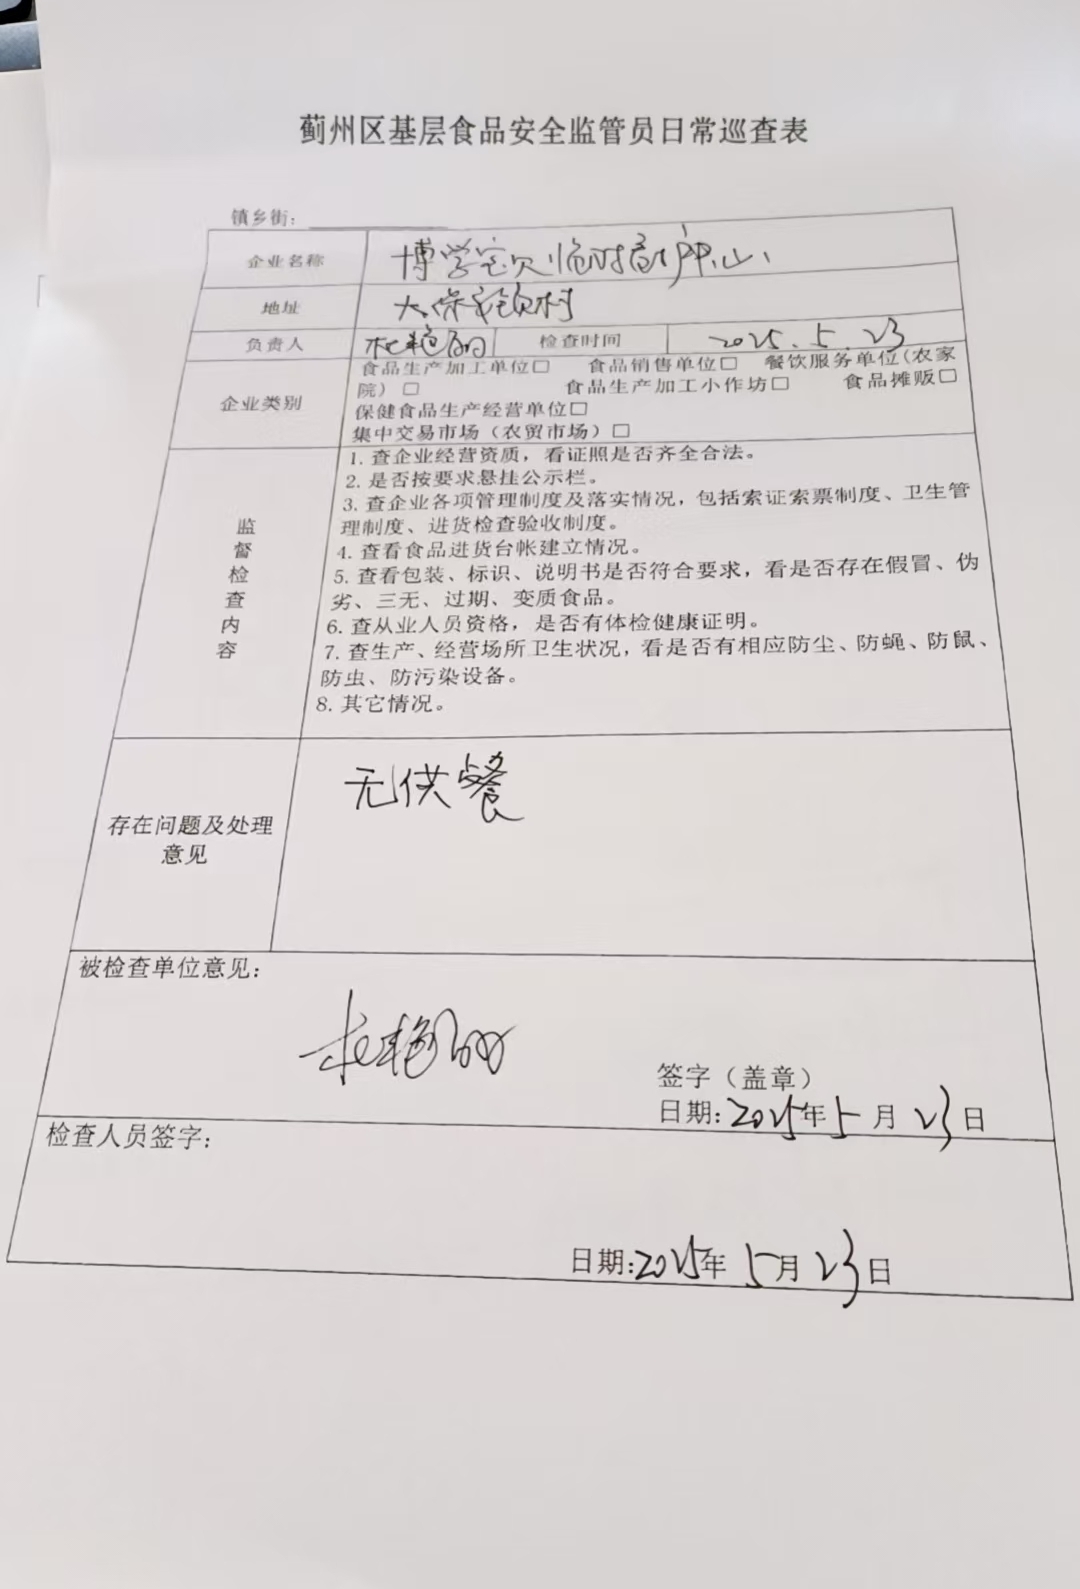 蓟州区基层食品安全监管员日常巡查表
镇乡街：
企业名称 博学宝贝临时看护中心
地址
负责人 检查时间 2025.5.23
企业类别
食品生产加工单位□ 食品销售单位□ 餐饮服务单位（农家
院）□ 食品生产加工小作坊□ 食品摊贩□
保健食品生产经营单位□
集中交易市场（农贸市场）□
监督检查内容
1. 查企业经营资质，看证照是否齐全合法。
2. 是否按要求悬挂公示栏。
3. 查企业各项管理制度及落实情况，包括索证索票制度、卫生管
理制度、进货检查验收制度。
4. 查看食品进货台帐建立情况。
5. 查看包装、标识、说明书是否符合要求，看是否存在假冒、伪
劣、三无、过期、变质食品。
6. 查从业人员资格，是否有体检健康证明。
7. 查生产、经营场所卫生状况，看是否有相应防尘、防蝇、防鼠、
防虫、防污染设备。
8. 其它情况。
存在问题及处理
意见
无供餐
被检查单位意见：
签字（盖章）
日期：2025年5月23日
检查人员签字：
日期：2025年5月23日